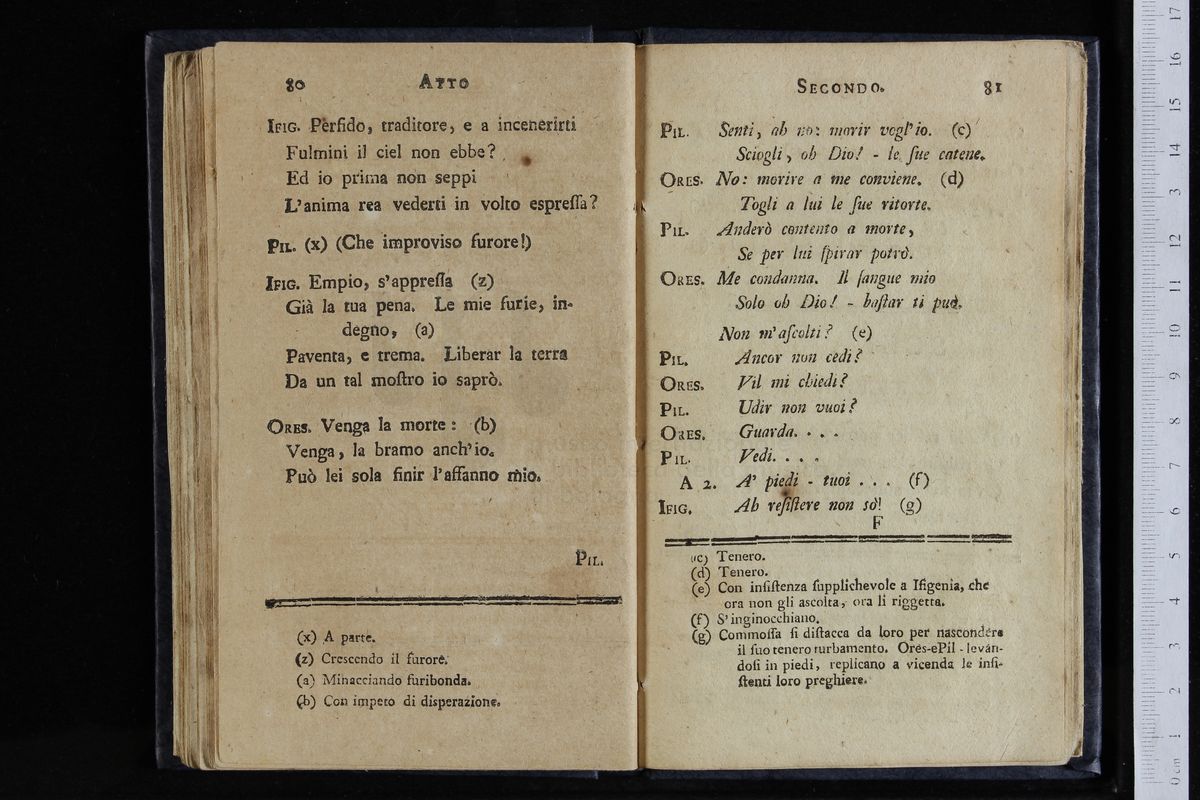 80 ATTO
IFIG. Perfido, traditore, e a incenerirti
Fulmini il ciel non ebbe?
Ed io prima non seppi
L'anima rea vederti in volto espreſſa?
PIL. (x) (Che improviso furore!)
IFIG. Empio, s'appreſſa (z)
Già la tua pena. Le mie furie, in-
degno, (a)
Paventa, e trema. Liberar la terra
Da un tal moſtro io saprò.
ORES. Venga la morte: (b)
Venga, la bramo anch'io.
Può lei sola finir l'affanno mio.
PIL.
(x) A parte.
(z) Crescendo il furore.
(a) Minacciando furibonda.
(b) Con impeto di disperazione.
SECONDO. 81
PIL. Senti, ah no: morir vogl'io. (c)
Sciogli, oh Dio! - le ſue catene.
ORES. No: morire a me conviene. (d)
Togli a lui le ſue ritorte.
PIL. Anderò contento a morte,
Se per lui ſpirar potrò.
ORES. Me condanna. Il ſangue mio
Solo oh Dio! - baſtar ti può.
Non m'aſcolti? (e)
PIL. Ancor non cedi?
ORES. Vil mi chiedi?
PIL. Udir non vuoi?
ORES. Guarda. . . .
PIL. Vedi. . . .
A 2. A' piedi - tuoi . . . (f)
IFIG. Ah reſiſtere non sò! (g)
F
(c) Tenero.
(d) Tenero.
(e) Con inſiſtenza ſupplichevole a Ifigenia, che
ora non gli ascolta, ora li riggetta.
(f) S'inginocchiano.
(g) Commoſſa ſi diſtacca da loro per nascondere
il ſuo tenero turbamento. Ores-ePil - levan-
doſi in piedi, replicano a vicenda le inſi-
ſtenti loro preghiere.
0 cm 1 2 3 4 5 6 7 8 9 10 11 12 3 14 15 16 17